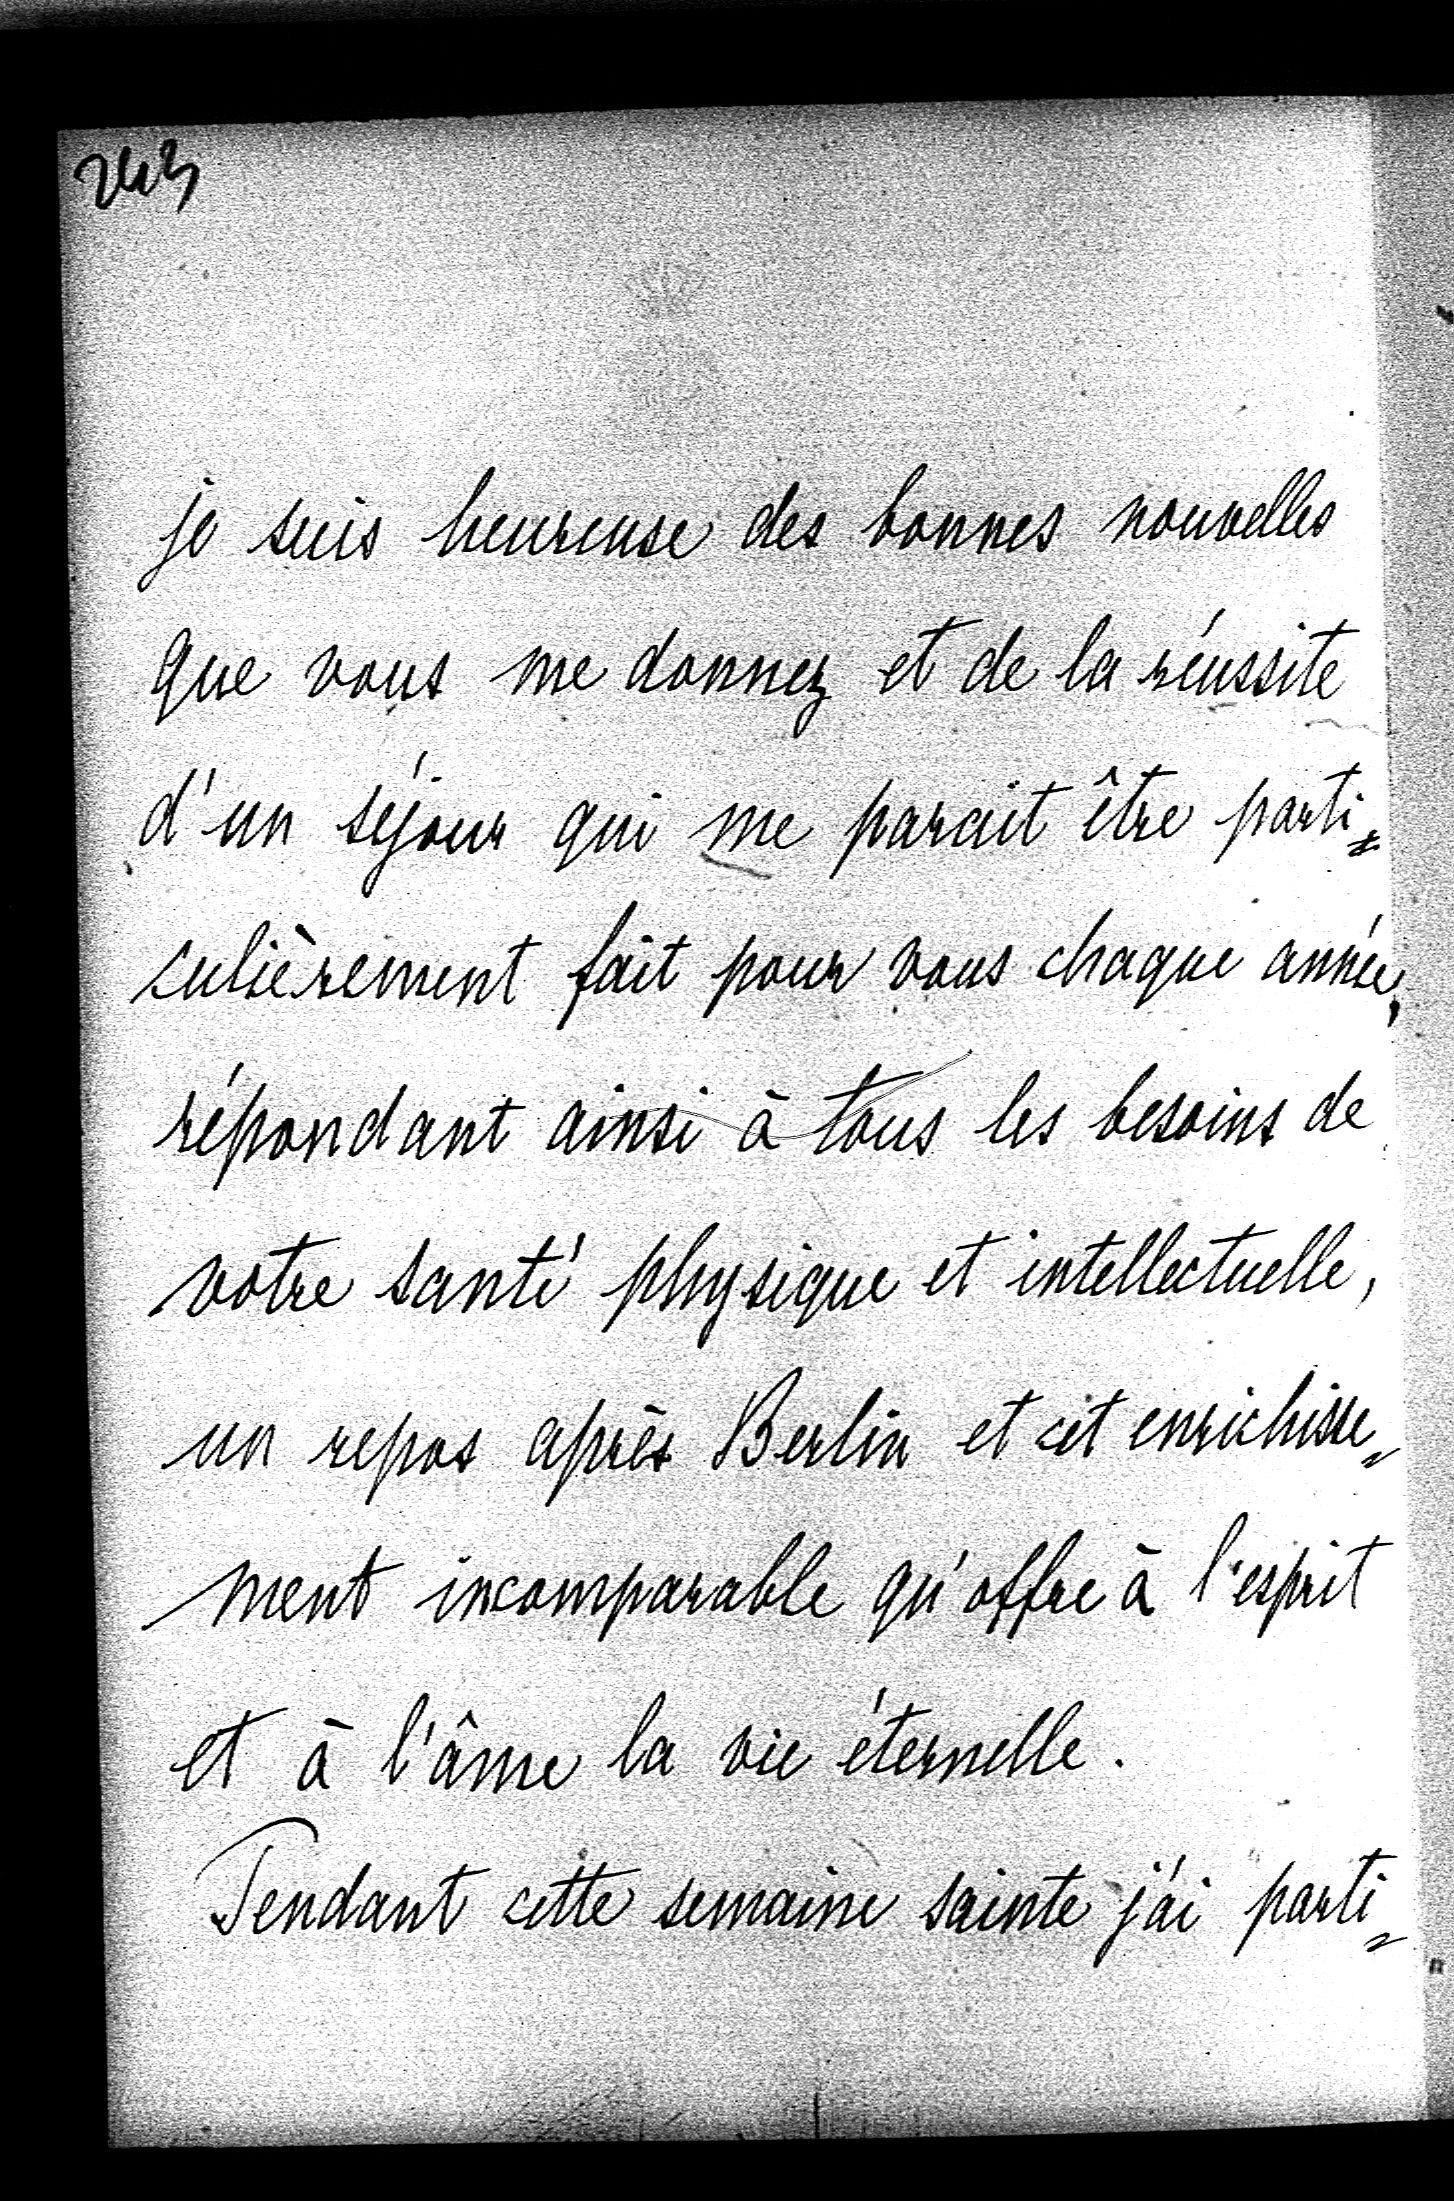 243
je suis heureuse des bonnes nouvelles
que vous me donnez et de la réussite
d'un séjour qui me parait être parti=
culièrement fait pour vous chaque année,
répondant ainsi à tous les besoins de
votre santé physique et intellectuelle,
un repos après Berlin et cet enrichisse=
ment incomparable qu'offre à l'esprit
et à l'âme la vie éternelle.
Pendant cette semaine sainte j'ai parti=